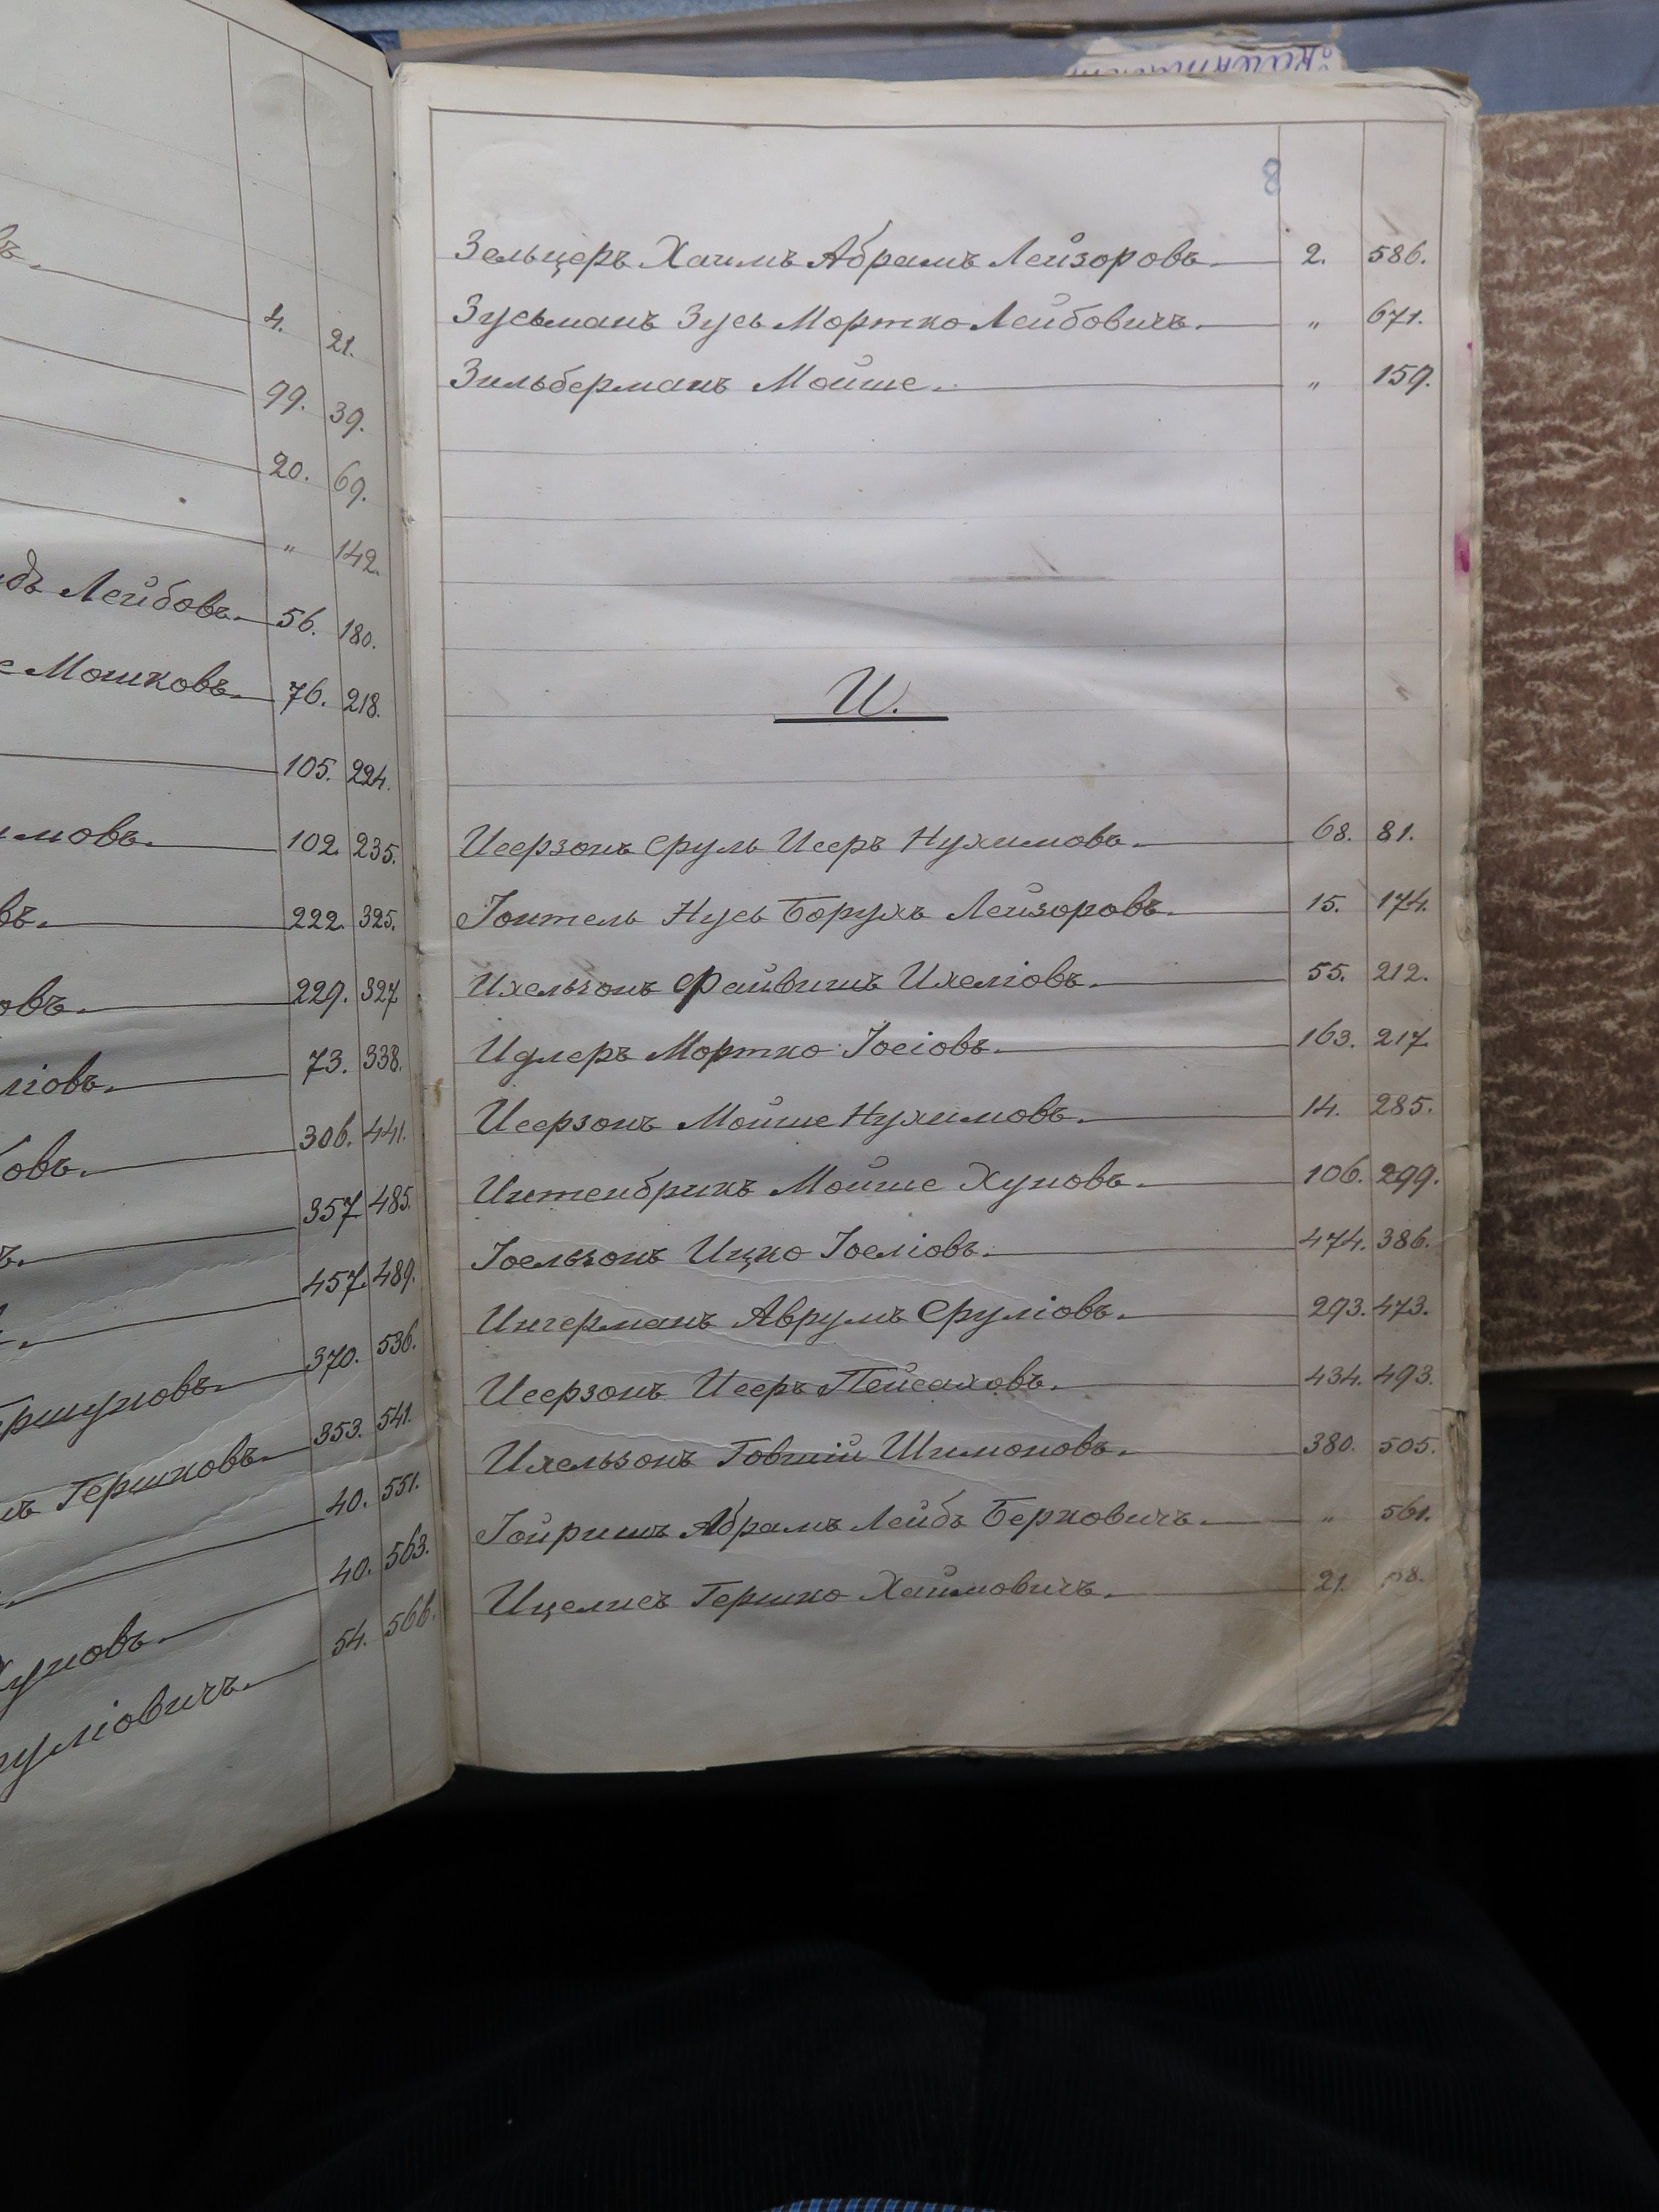 4. 21.
99. 39.
20. 69.
" 142.
Лейбовъ 56. 180.
Мошковъ 76. 218.
105. 224.
102. 235.
222. 325.
229. 327
73. 338.
306. 441.
357 485.
457. 489.
370. 536.
Гершковъ 353. 541.
40. 551.
40. 563.
54. 566.
8
Зельцеръ Хаимъ Абрамъ Лейзоровъ 2. 586.
Зусьманъ Зусь Мортко Лейбовичъ " 671.
Зильберманъ Мойше " 159.
И.
Исерзонъ Сруль Исеръ Нухимовъ 68. 81.
Іонтель Нусь Борухъ Лейзоровъ 15. 174.
Ихельзонъ Файвишъ Ихеліовъ 55. 212.
Идлеръ Мортко Іосіовъ 163. 217.
Исерзонъ Мойше Нухимовъ 14. 285.
Интенбрикъ Мойше Хуновъ 106. 299.
Іоельзонъ Ицко Іоеліовъ 474. 386.
Ингерманъ Аврумъ Сруліовъ 293. 473.
Исерзонъ Исеръ Пейсаховъ 434. 493.
Ихельзонъ Говшій Шимоновъ 380. 505.
Іойришъ Абрамъ Лейбъ Берковичъ " 561.
Ицелисъ Гершко Хаймовичъ 21.